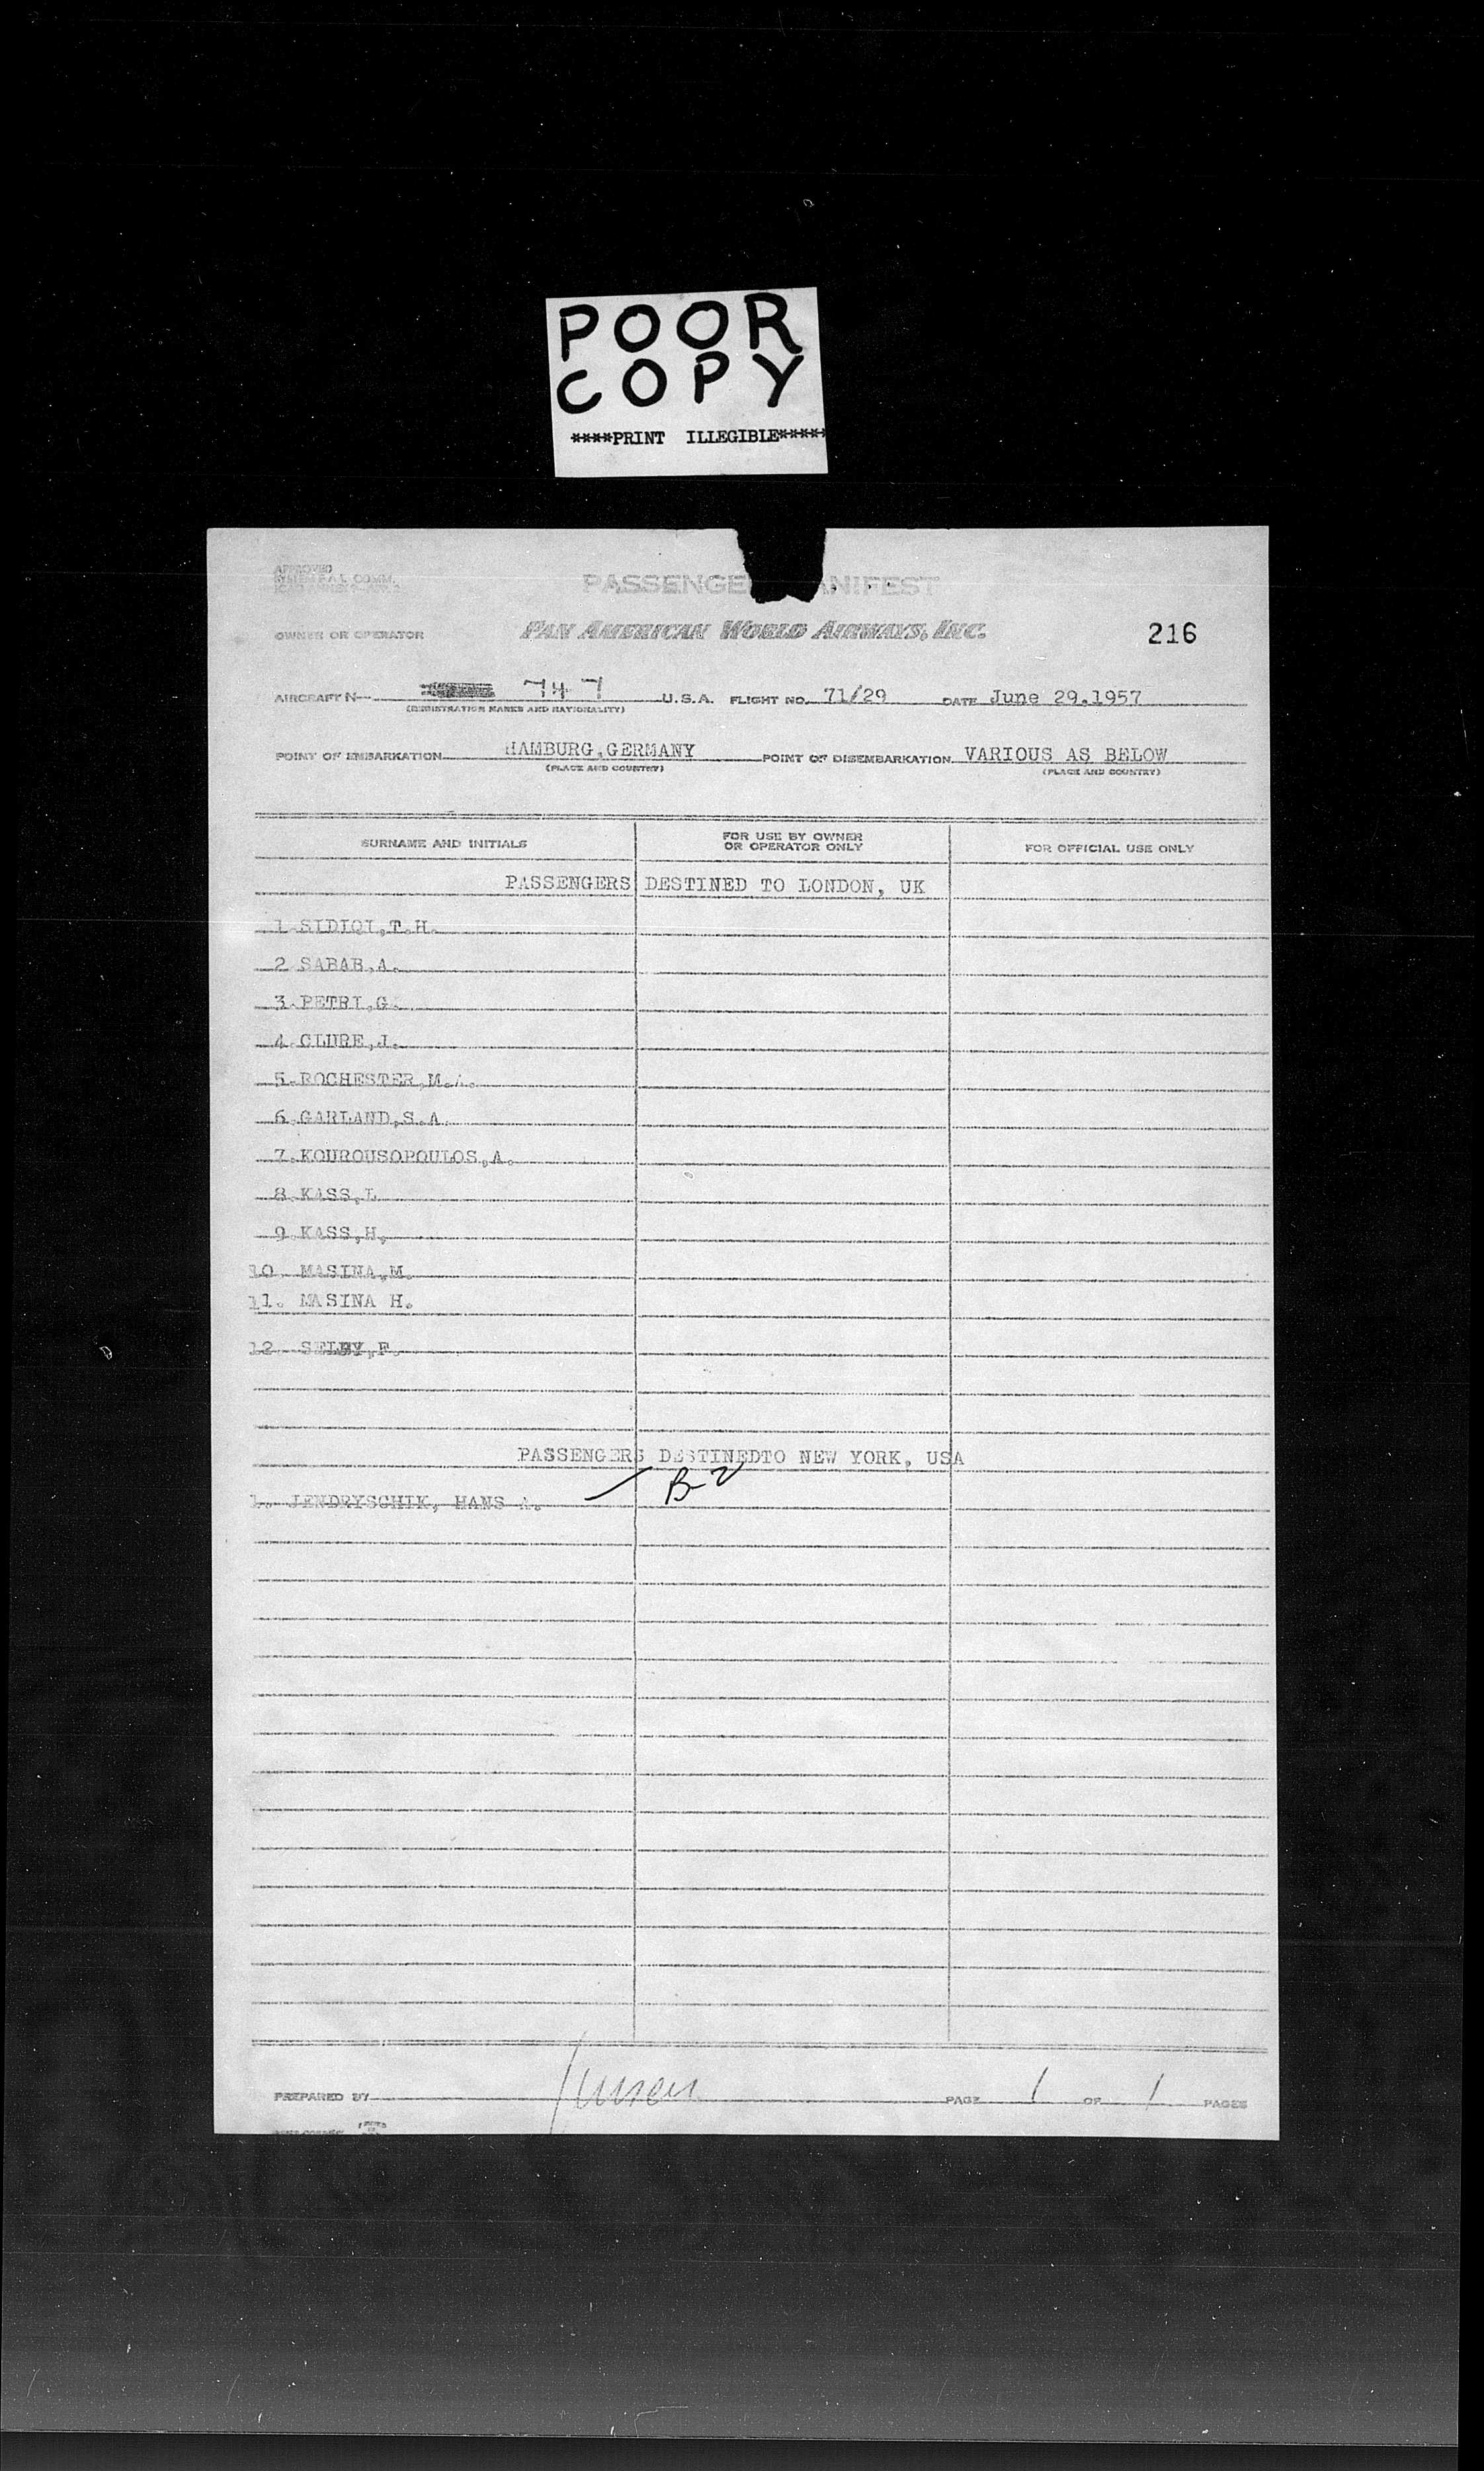 POOR
COPY
****PRINT ILLEGIBLE*****
APPROVED
SYSTEM F.A.L. COMM.
PASSENGE ANIFEST
OWNER OR OPERATOR PAN AMERICAN WORLD AIRWAYS, INC. 216
AIRCRAFT N- 747 U.S.A. FLIGHT NO. 71/29 DATE June 29.1957
(REGISTRATION MARKS AND NATIONALITY)
POINT OF EMBARKATION HAMBURG,GERMANY POINT OF DISEMBARKATION VARIOUS AS BELOW
(PLACE AND COUNTRY) (PLACE AND COUNTRY)
SURNAME AND INITIALS FOR USE BY OWNER OR OPERATOR ONLY FOR OFFICIAL USE ONLY
PASSENGERS DESTINED TO LONDON, UK
1.SIDIQI,T.H.
2.SABAB,A.
3.PETRI,G.
4.CLURE,J.
5.ROCHESTER,M.A.
6.GARLAND,S.A.
7.KOUROUSOPOULOS,A.
8.KASS,L
9.KASS,H.
10. MASINA,M.
11. MASINA H.
12. SELBY,F.
PASSENGERS DESTINEDTO NEW YORK, USA
1. JENDRYSCHIK, HANS A. B-2
PREPARED BY Jensen PAGE 1 OF 1 PAGES